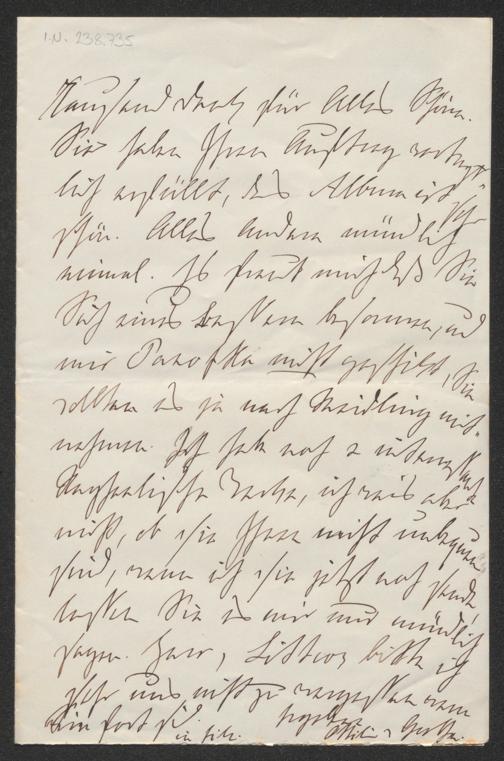 I.N. 238.735
Tausend Dank für Alles Schöne.
Sie haben Ihren Auftrag vortreff-
lich erfüllt, das Album ist sehr
schön. Alles Andere mündlich
einmal. Es freut mich daß Sie
Sich eines Besseren besonnen, und
mir Panofka nicht geschickt, Sie
sollten es ja nach Meidling mit-
nehmen. Ich habe noch 2 interessante
Werke, ich weis aber
nicht, ob sie Ihnen nicht unbequem
sind, wenn ich sie jetzt noch sende
lassen Sie es mir nur mündlich
sagen. Herr, bitte ich
sehr uns nicht zu vergessen wenn
Sie fort sind.
in Eile.